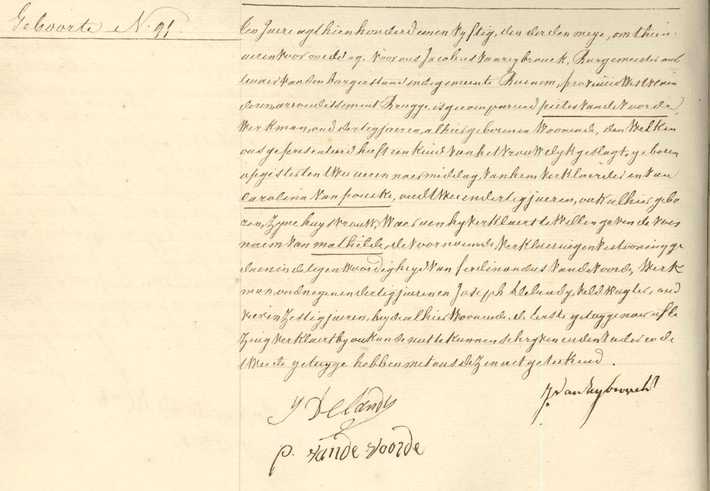 Geboorte N. 91.
Den jaere agthien honderd eenen vyftig, den derden meye, om thien
ueren voor middag, Voor ons Jacobus Van Rybrouck, Burgemeester amb
tenaer van den burgerstand in de gemeente Beernem, provincie West Vlaen
deren arrondissement Brugge, is gecompareerd pieter Vande Voorde,
Werkman, oud dertig jaeren, alhier geboren en Woonende, den Welken
ons gepresenteerd heeft een kind van het Vrouwelyk geslagt, geboren
op gisteren twee ueren naer middag, van hem Verklaerder en van
Carolina Van poucke, oud twee en dertig jaeren, ook alhier gebo
ren, Zyne huysvrouw, Waer aen hy verklaert te Willen geven de voor
naem van mathilde, de voornoemde Verklaeringen en Vertooning ge
daen in de tegenwoordigheyd van ferdinandus Vande Voorde, Werk
man, oud negen en dertig jaeren en Joseph Delandy, Veld Wagter, oud
vier en Zestig jaeren, beyde alhier Woonende, de eerste getuyge naer
Zeug verklaert by oorkonde niet te kunnen schryven en den Vader en de
tweede getuyge hebben met ons dezen act geteekend.
J Delandy
J. Van Rybrouck
p. vande voorde